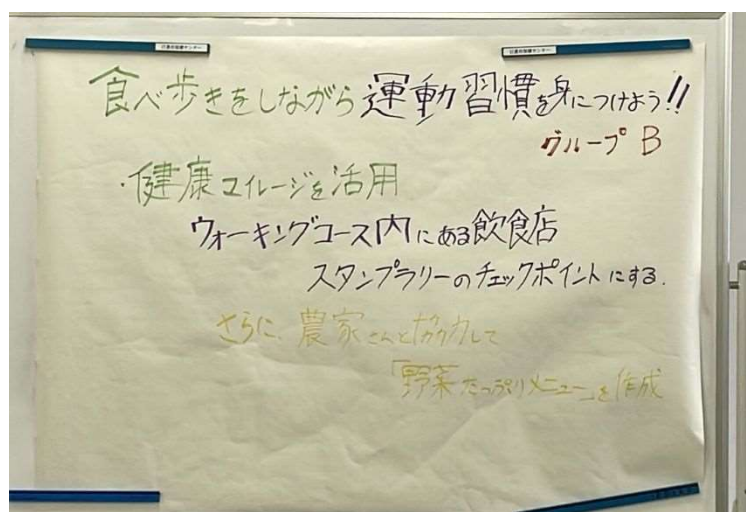 食べ歩きをしながら運動習慣を身につけよう!!
グループB
・健康マイレージを活用
ウォーキングコース内にある飲食店
スタンプラリーのチェックポイントにする.
さらに、農家さんと協力して
「野菜たっぷりメニュー」を作成